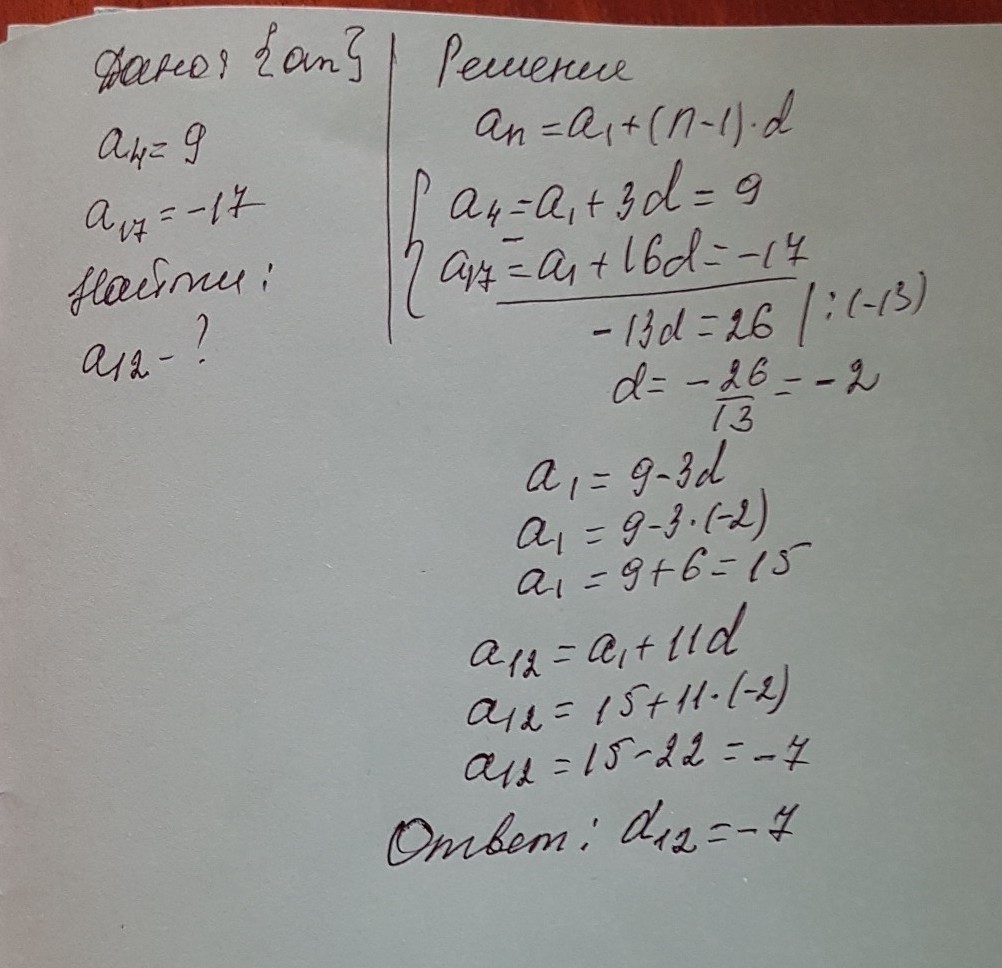 Дано: {an}
a4 = 9
a17 = -17
Найти:
a12 - ?
Решение
an = a1 + (n-1)·d
{ a4 = a1 + 3d = 9
a17 = a1 + 16d = -17
-13d = 26 | : (-13)
d = - 26/13 = -2
a1 = 9-3d
a1 = 9-3·(-2)
a1 = 9+6 = 15
a12 = a1 + 11d
a12 = 15+11·(-2)
a12 = 15-22 = -7
Ответ: a12 = -7